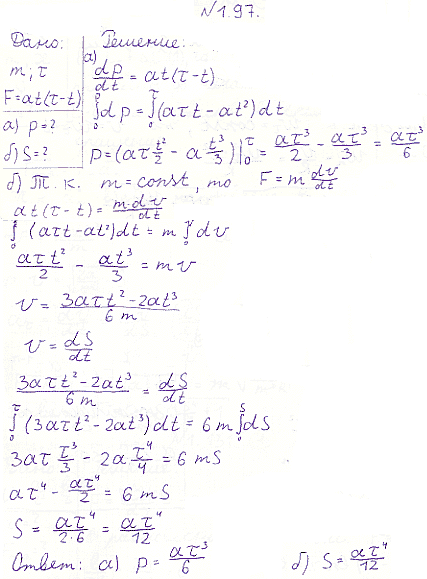 N 1.97.
Дано: Решение:
m, τ
F=at(τ-t)
а) p=?
б) S=?
а) dp/dt = at(τ-t)
∫₀ dp = ∫₀^τ (aτt - at²)dt
p = (aτ t²/2 - a t³/3)|₀^τ = aτ³/2 - aτ³/3 = aτ³/6
б) Т. к. m=const, то F = m dv/dt
at(τ-t) = m·dv/dt
∫₀ (aτt - at²)dt = m ∫₀^v dv
aτt²/2 - at³/3 = mv
v = (3aτt² - 2at³)/6m
v = dS/dt
(3aτt² - 2at³)/6m = dS/dt
∫₀^τ (3aτt² - 2at³)dt = 6m ∫₀^S dS
3aτ τ³/3 - 2a τ⁴/4 = 6mS
aτ⁴ - aτ⁴/2 = 6mS
S = aτ⁴/2·6 = aτ⁴/12
Ответ: а) p = aτ³/6 б) S = aτ⁴/12